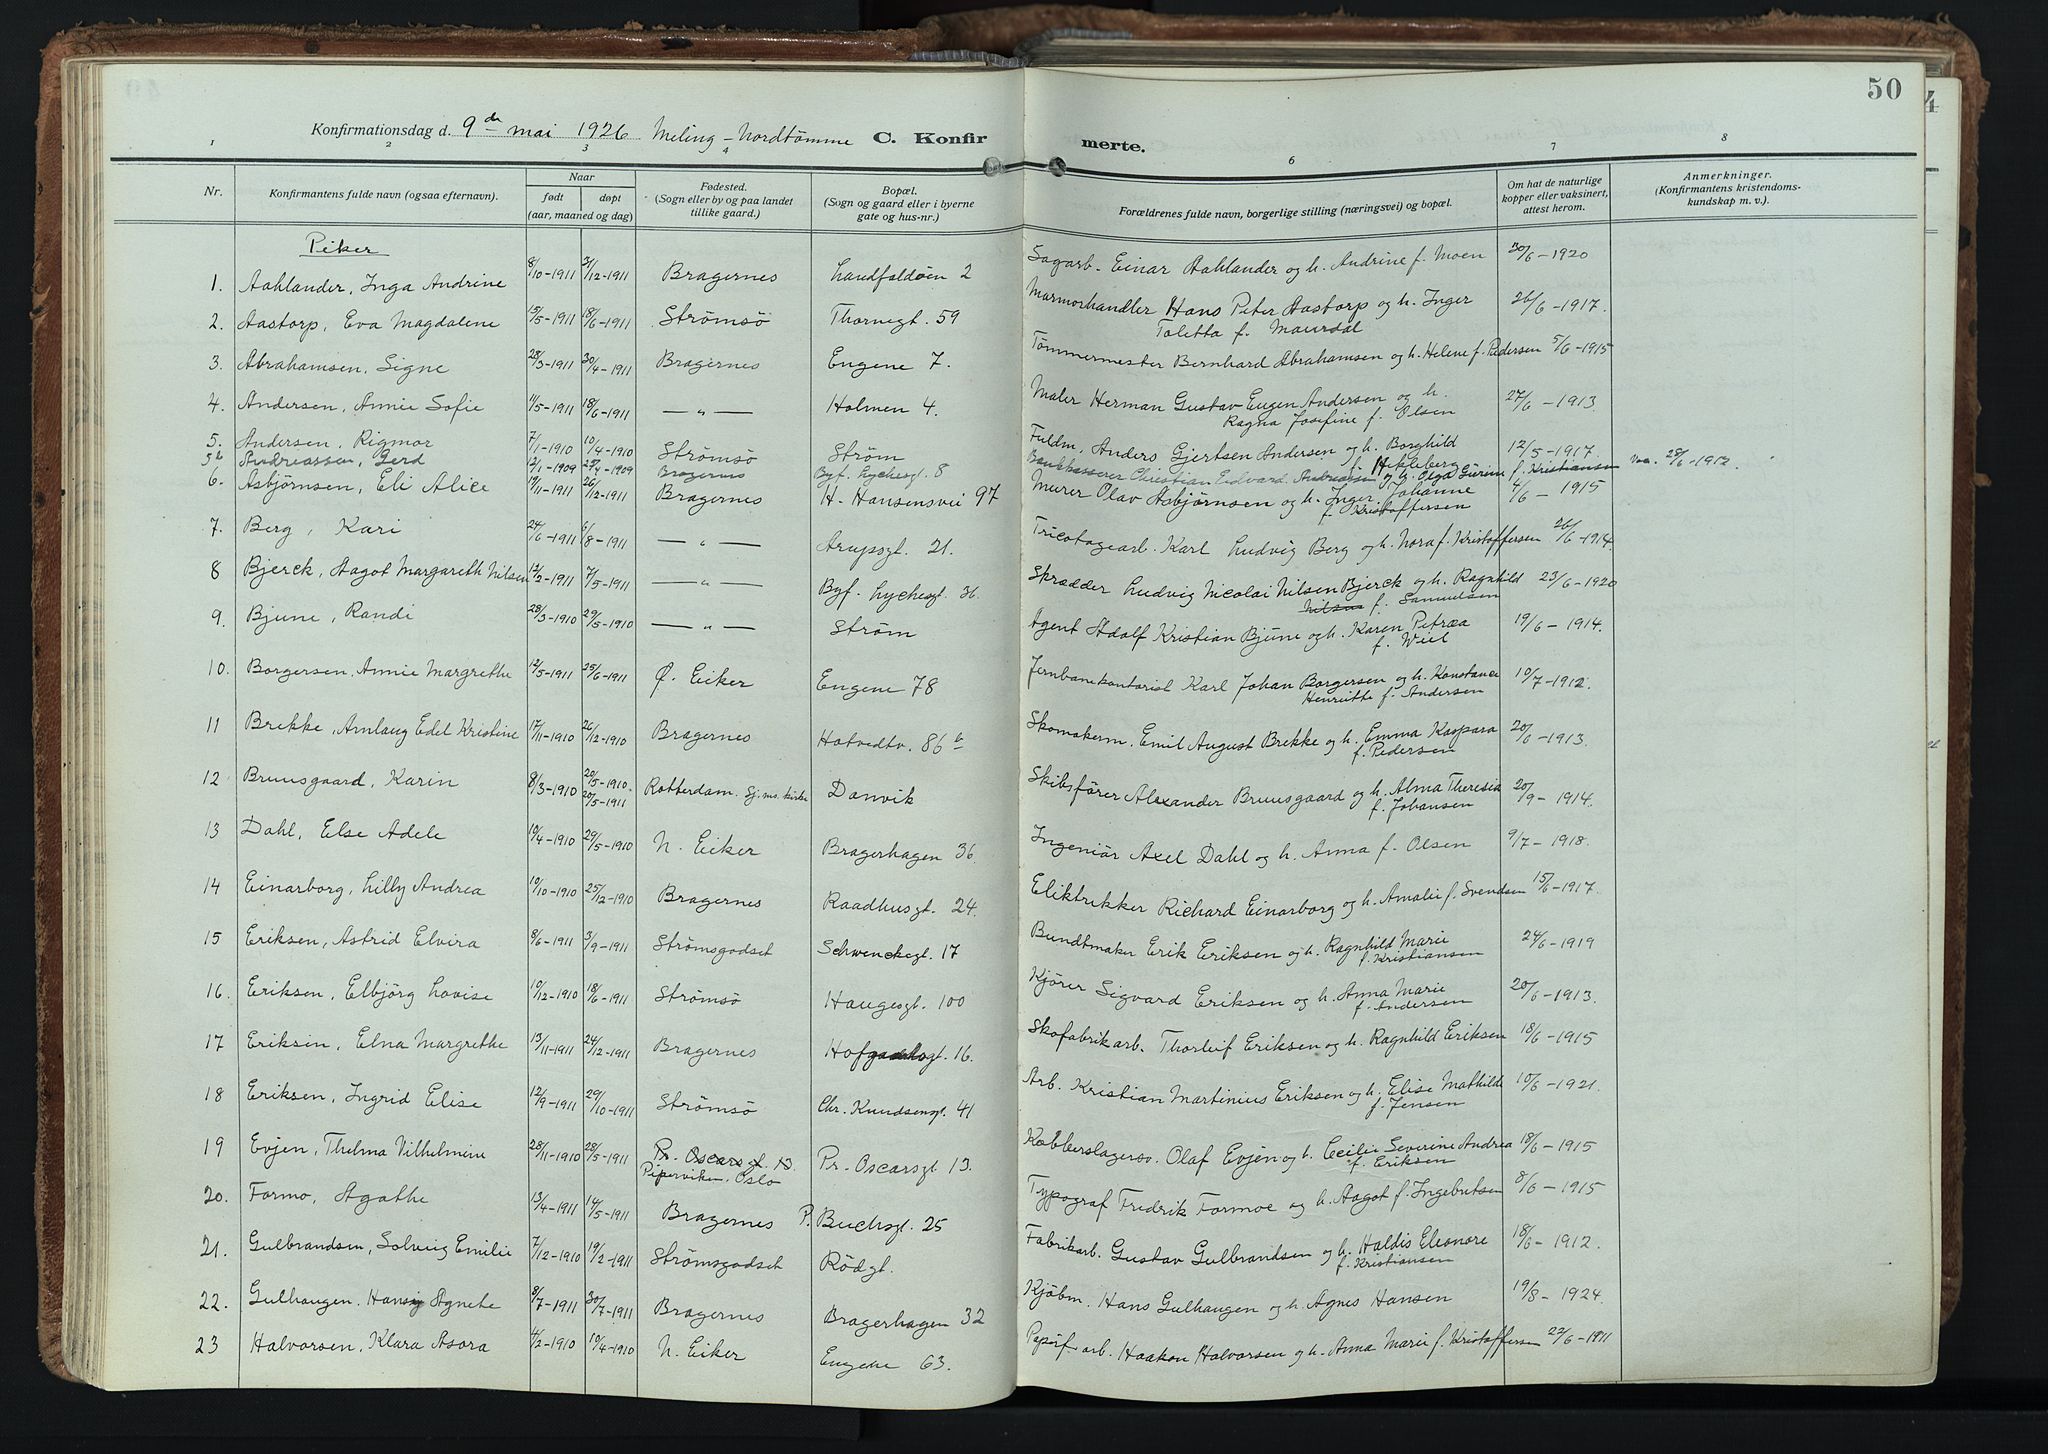 50
Konfirmationsdag d. 9de mai 1926 Meling - Nordtømme C. Konfirmerte.
1 2 3 4 6 7 8
Nr. Konfirmantens fulde navn (ogsaa efternavn). Naar født døpt (aar, maaned og dag) Fødested. (Sogn eller by og paa landet tillike gaard.) Bopæl. (Sogn og gaard eller i byerne gate og hus-nr.) Forældrenes fulde navn, borgerlige stilling (næringsvei) og bopæl. Om hat de naturlige kopper eller vaksinert, attest herom. Anmerkninger. (Konfirmantens kristendoms-kundskap m. v.).
Piker
1. Aahlander, Inga Andrine 8/10-1911 /12-1911 Bragernes Landfaldøen 2 Sagarb. Einar Aahlander og h. Andrine f. Moen 30/6-1920
2. Aastorp, Eva Magdalene 15/5-1911 18/6-1911 Strømsø Thornegt. 59 Marmorhandler Hans Peter Aastorp og h. Inger 26/6-1917.
Toletta f. Maurdal
3. Abrahamsen, Signe 28/3-1911 30/4-1911 Bragernes Engene 7. Tømmermester Bernhard Abrahamsen og h. Helene f. Pedersen 5/6-1915
4. Andersen, Annie Sofie 11/5-1911 18/6-1911 — " — Holmen 4. Maler Herman Gustav Eugen Andersen og h. 27/6-1913.
Ragna Josefine f. Olsen
5. Andersen, Rigmor 7/1-1910 10/4-1910 Strømsø Strøm Fuldm. Anders Gjertsen Andersen og h. Borghild 12/5-1917.
f. Hekleberg
5b Andreassen, Gerd 12/1-1909 27/4-1909 Bragernes Byf. Lychesgt. 8 Bankkasserer Christian Edvard Andreassen og h. Olga Gurine f. Kristiansen Vac. 28/6-1912
6. Asbjørnsen, Eli Alice 19/11-1911 26/12-1911 Bragernes H. Hansensvei 97 Murer Olav Asbjørnsen og h. Inger Johanne 4/6-1915
f. Kristoffersen
7. Berg, Kari 24/6-1911 6/8-1911 — " — Arupsgt. 21. Tricotagearb. Karl Ludvig Berg og h. Nora f. Kristoffersen 26/6-1914.
8 Bjerck, Aagot Margareth Nilsen 12/2-1911 7/5-1911 — " — Byf. Lychesgt. 36. Skrædder Ludvig Nicolai Nilsen Bjerck og h. Ragnhild 23/6-1920
Nilsen f. Samuelsen
9. Bjune, Randi 28/3-1910 29/5-1910 — " — Strøm Agent Adolf Kristian Bjune og h. Karen Petræa 19/6-1914.
f. Wiel
10. Borgersen, Annie Margrethe 12/5-1911 25/6-1911 Ø. Eiker Engene 78 Jernbanekontorist Karl Johan Borgersen og h. Konstance 10/7-1912.
Henriette f. Andersen
11 Brekke, Arnlaug Edel Kristine 17/11-1910 26/12-1910 Bragernes Hotvedtv. 86 b Skomakerm. Emil August Brekke og h. Emma Kaspara 20/6-1913.
f. Pedersen
12 Bruusgaard, Karin 8/3-1910 20/5-1910. 20/5-1911 Rotterdam. Sj. ms. kirke Danvik Skibsfører Alexander Bruusgaard og h. Alma Theresia 20/9-1914.
f. Johansen
13 Dahl, Else Adele 19/4-1910 29/5-1910 N. Eiker Bragerhagen 36. Ingeniør Axel Dahl og h. Anna f. Olsen 9/7-1918.
14 Einarborg, Lilly Andrea 10/10-1910 25/12-1910 Bragernes Raadhusgt. 24. Eliktrikker Richard Einarborg og h. Amalie f. Svendsen 15/6-1917.
15 Eriksen, Astrid Elvira 8/6-1911 3/9-1911 Strømsgodset Schwenckegt. 17 Bundtmaker Erik Eriksen og h. Ragnhild Marie 24/6-1919
f. Kristiansen
16. Eriksen, Elbjörg Lovise 10/12-1910 18/6-1911 Strømsø Haugesgt. 100 Kjører Sigvard Eriksen og h. Anna Marie 20/6-1913.
f. Andersen
17 Eriksen, Elna Margrethe 13/11-1911 24/12-1911 Bragernes Hofgaardsgt. 16. Skofabrikarb. Thorleif Eriksen og h. Ragnhild Eriksen 18/6-1915
18 Eriksen, Ingrid Elise 12/9-1911 29/10-1911 Strømsø Chr. Knudsensgt. 41 Arb. Kristian Martinius Eriksen og h. Elise Mathilde 10/6-1921.
f. Jensen
19 Evjen, Thelma Vilhelmine 28/11-1910 28/5-1911 Pr. Oscars gt 13. Pr. Oscarsgt 13. Kobberslagersv. Olaf Evjen og h. Cecilie Severine Andrea 18/6-1915
Piperviken, Oslo f. Eriksen
20. Formo, Agathe 13/4-1911 14/5-1911 Bragernes P. Buchsgt. 25 Typograf Fredrik Formoe og h. Aagot f. Ingebretsen 8/6-1915
21. Gulbrandsen, Solveig Emilie 7/12-1910 19/2-1911 Strømsgodset Rødgt. Fabrikarb. Gustav Gulbrandsen og h. Haldis Eleonore 18/6-1912.
f. Kristiansen
22. Gulhaugen, Hansig Agnete 8/7-1911 30/7-1911 Bragernes Bragerhagen 32 Kjøbm. Hans Gulhaugen og h. Agnes Hansen 19/8-1924
23 Halvorsen, Klara Asora 4/2-1910 10/4-1910 N. Eiker Engene 63. Papirf. arb. Haakon Halvorsen og h. Anna Marie f. Kristoffersen 22/6-1911